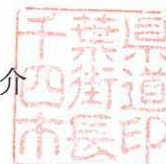 介
千葉県
四街道
市長印